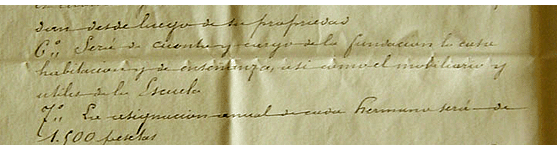 dan desde luego de su propiedad
6º. Será de cuenta y cargo de la fundacion la casa
habitacion y de enseñanza, asi como el mobiliario y
utiles de la Escuela
7º. La asignacion anual de cada hermano será de
1.500 pesetas